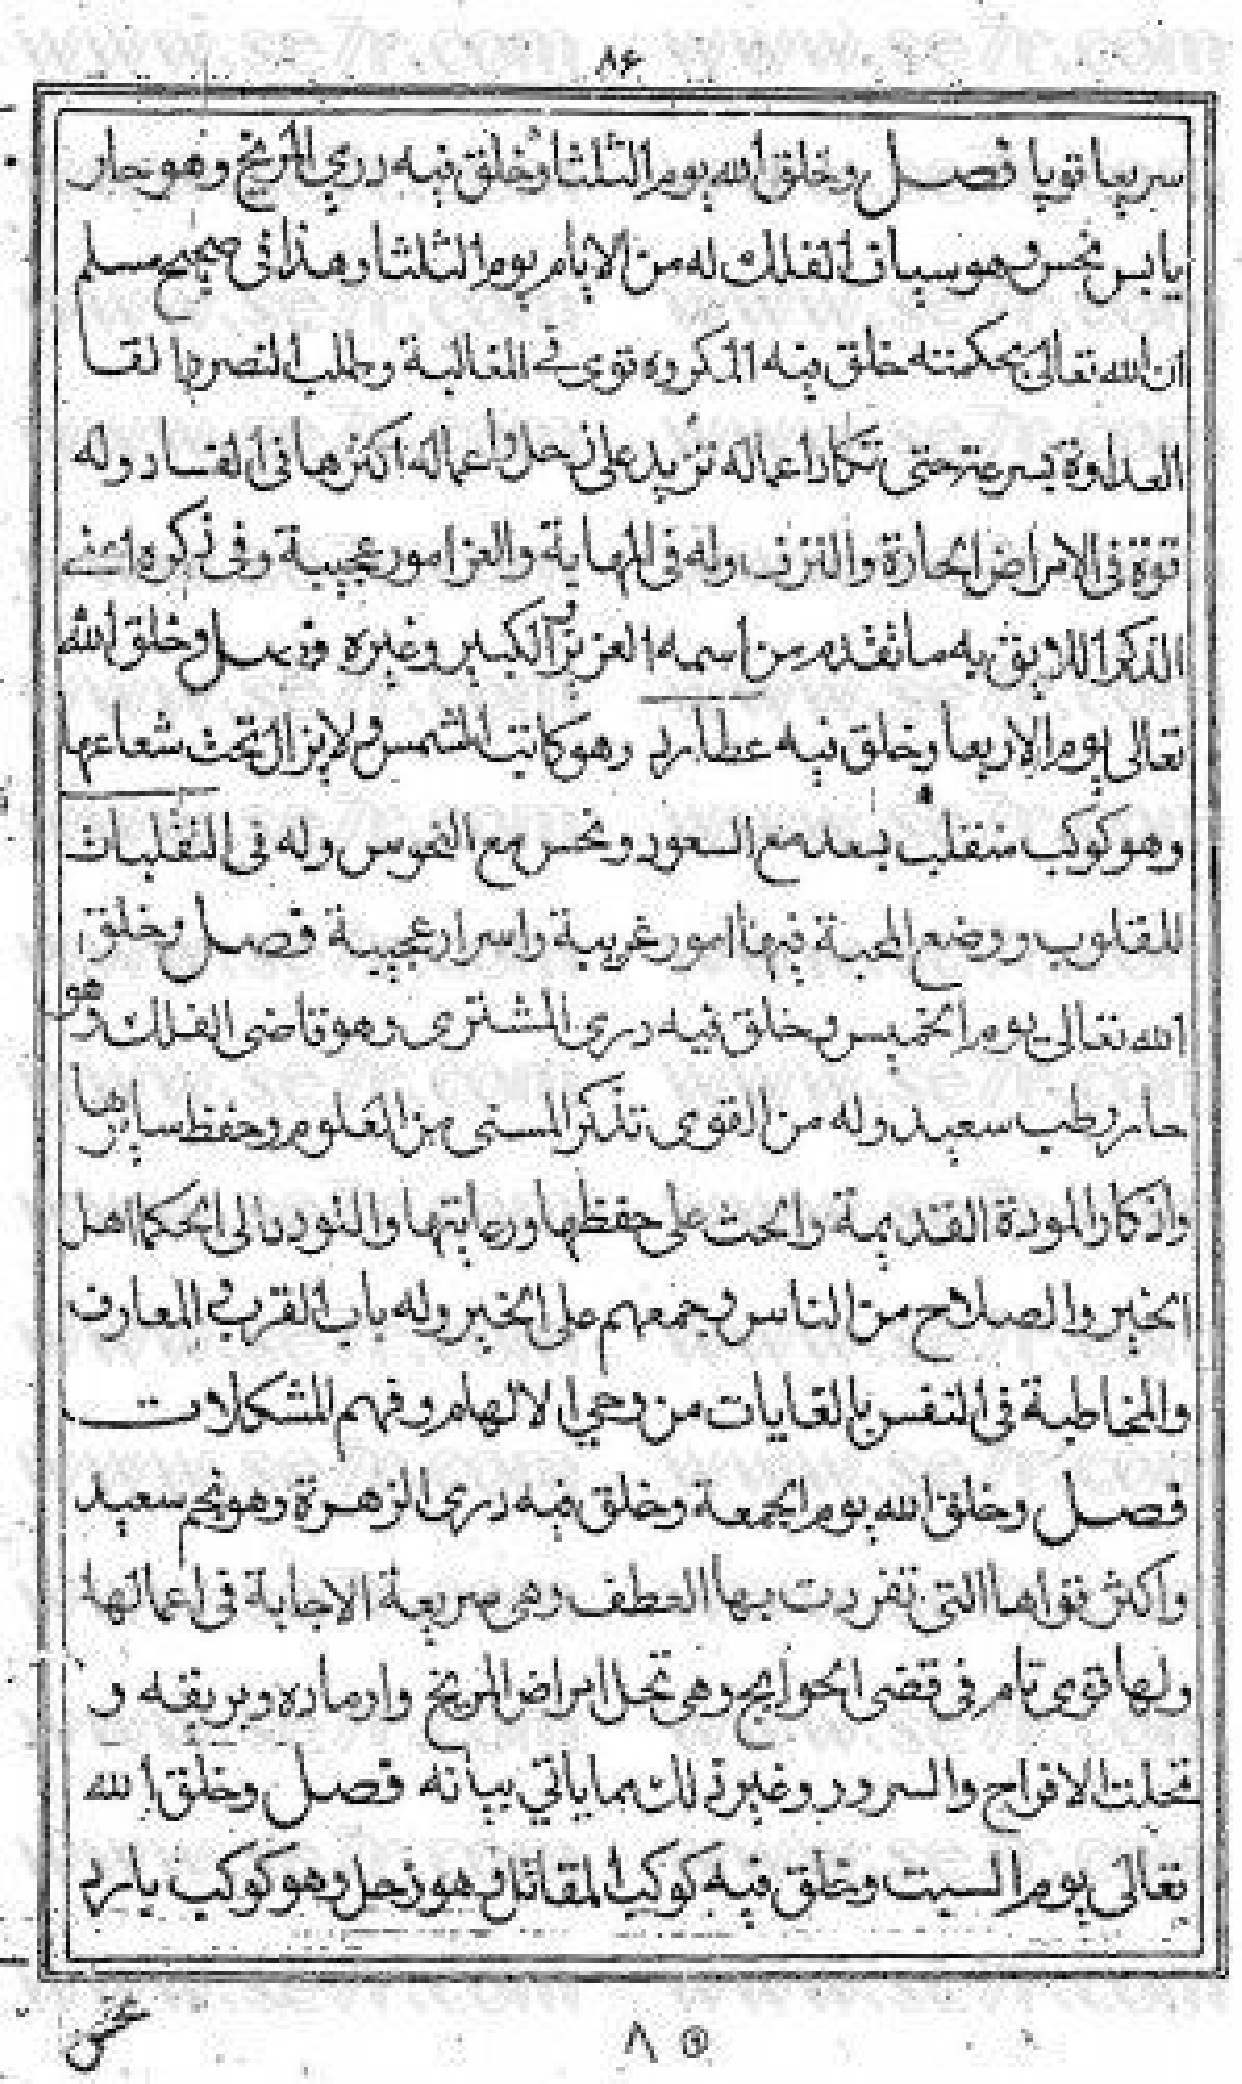 ٨۴
سريعا قويا فصل وخلق الله يوم الثلثا وخلق فيه دري المريخ وهو حار
يابس نحس وهو سياف الفلك له من الايام يوم الثلثا وهذا في صحيح مسلم
ان الله تعالى بحكمته خلق فيه المكروه قوى في الغالبة وطلب النصر والقا
العداوة بسرعة حتى تكاد اعماله تزيد على زحل واعماله اكثرها في الفساد وله
قوة في الامراض الحارة والنزف وله في المهابة والعز امور عجيبة وفي ذكره اعني
الذكر اللايق به ما تقدم من اسمه العزيز الكبير وغيره فصل وخلق الله
تعالى يوم الاربعا وخلق فيه عطارد وهو كاتب الشمس لا يزال تحت شعاعها
وهو كوكب منقلب بسعد مع السعود ونحس مع النحوس وله في التقلبات
للقلوب ووضع المحبة فيها امور غريبة واسرار عجيبة فصل وخلق
الله تعالى يوم الخميس وخلق فيه دري المشترى وهو قاضى الفلك وهو
حار رطب سعيد وله من القوى تذكر المسنى من العلوم وحفظ سايرها
واذكار المودة القديمة والحث على حفظها ورعايتها والتودد الى الحكما اهل
الخير والصلاح من الناس وجمعهم على الخير وله باب القرب في المعارف
والمخاطبة في النفس بالغايات من وحي الالهام وفهم المشكلات
فصل وخلق الله يوم الجمعة وخلق فيه دري الزهرة وهو نجم سعيد
واكثر قواها التي تفردت بها العطف وهي سريعة الاجابة في اعمالها
ولها قوى تام في قضى الحوايج وهي تحل امراض المريخ وارماده وبريقه و
الافراح والسرور وغير ذلك مما ياتي بيانه فصل وخلق الله
تعالى يوم السبت وخلق فيه كوكب المقاتل هو زحل وهو كوكب بارد
٨٥